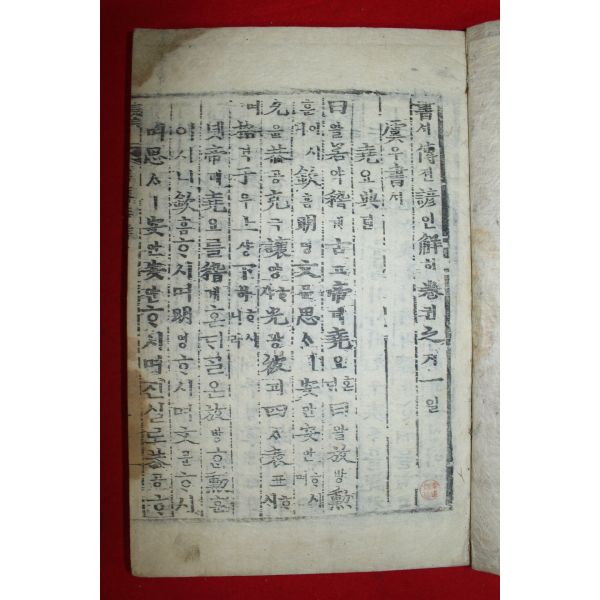 書셔傳젼諺언解ᄒᆡ卷권之지一일
虞우書셔
堯요典뎐
曰왈若약稽계古고帝뎨堯요혼ᄃᆡ曰왈放방勳
훈이시니欽흠明명文문思ᄉᆞㅣ安안安안ᄒᆞ시며
允윤恭공克극讓양ᄒᆞ샤光광被피四ᄉᆞ表표ᄒᆞ시
며格격于우上샹下하ᄒᆞ시니라
녯帝뎨堯요를稽계혼ᄃᆡᄀᆞᆯ온放방勳훈
이시니欽흠ᄒᆞ시며明명ᄒᆞ시며文문ᄒᆞ시
며思ᄉᆞㅣ安안安안ᄒᆞ시며진실로恭공ᄒᆞ